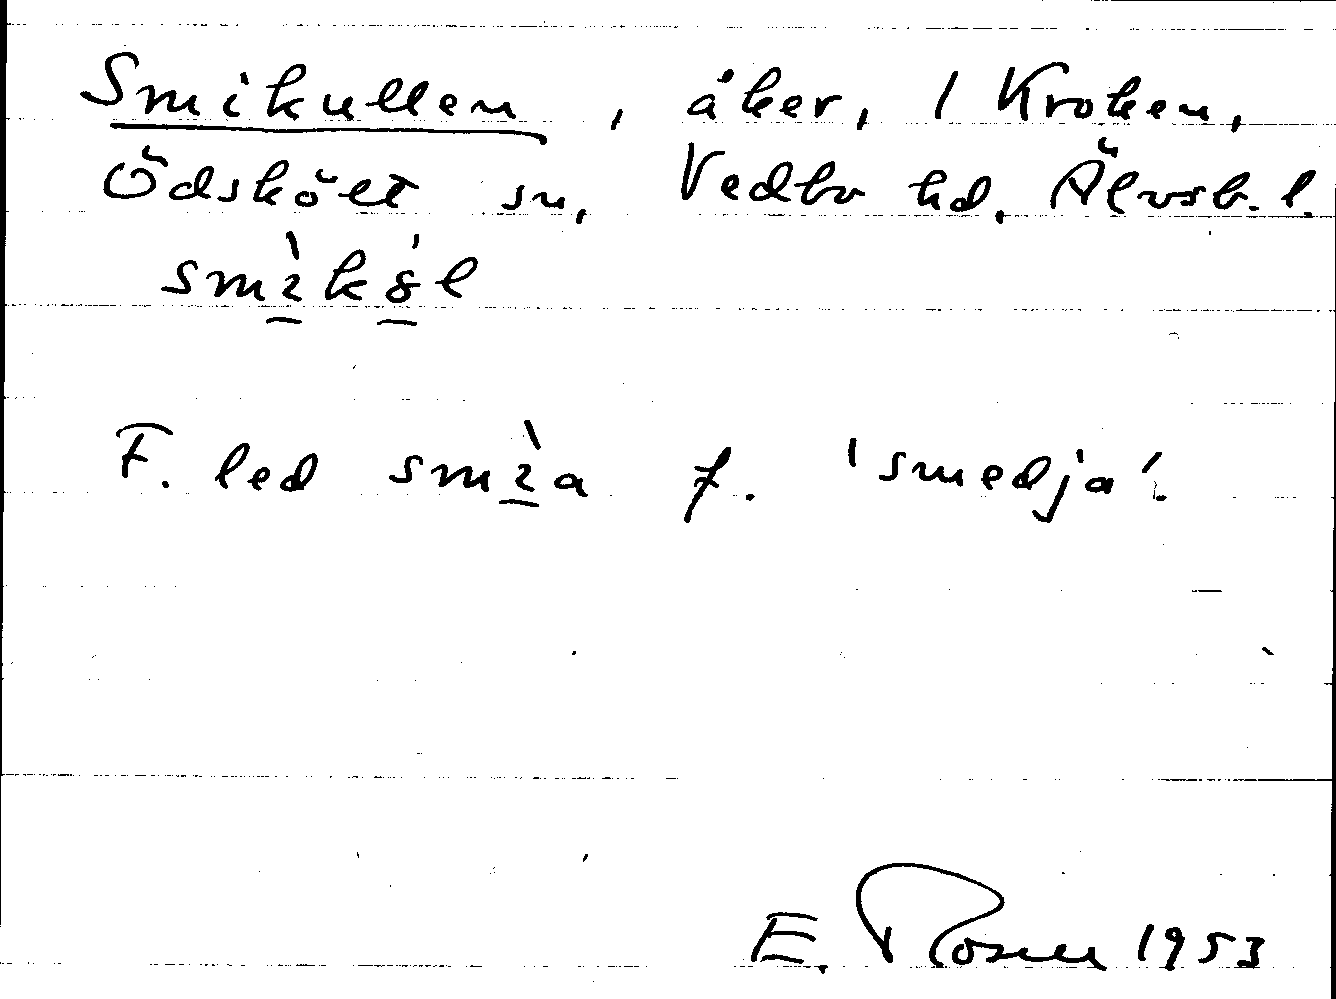 Smikullen, åker, 1 Kroken,
Ödskölt sn, Vedbo hd, Älvsb. l.
smɩ̀kȣ́l
F. led smɩ̀a f. 'smedja'.
E. Rosell 1953